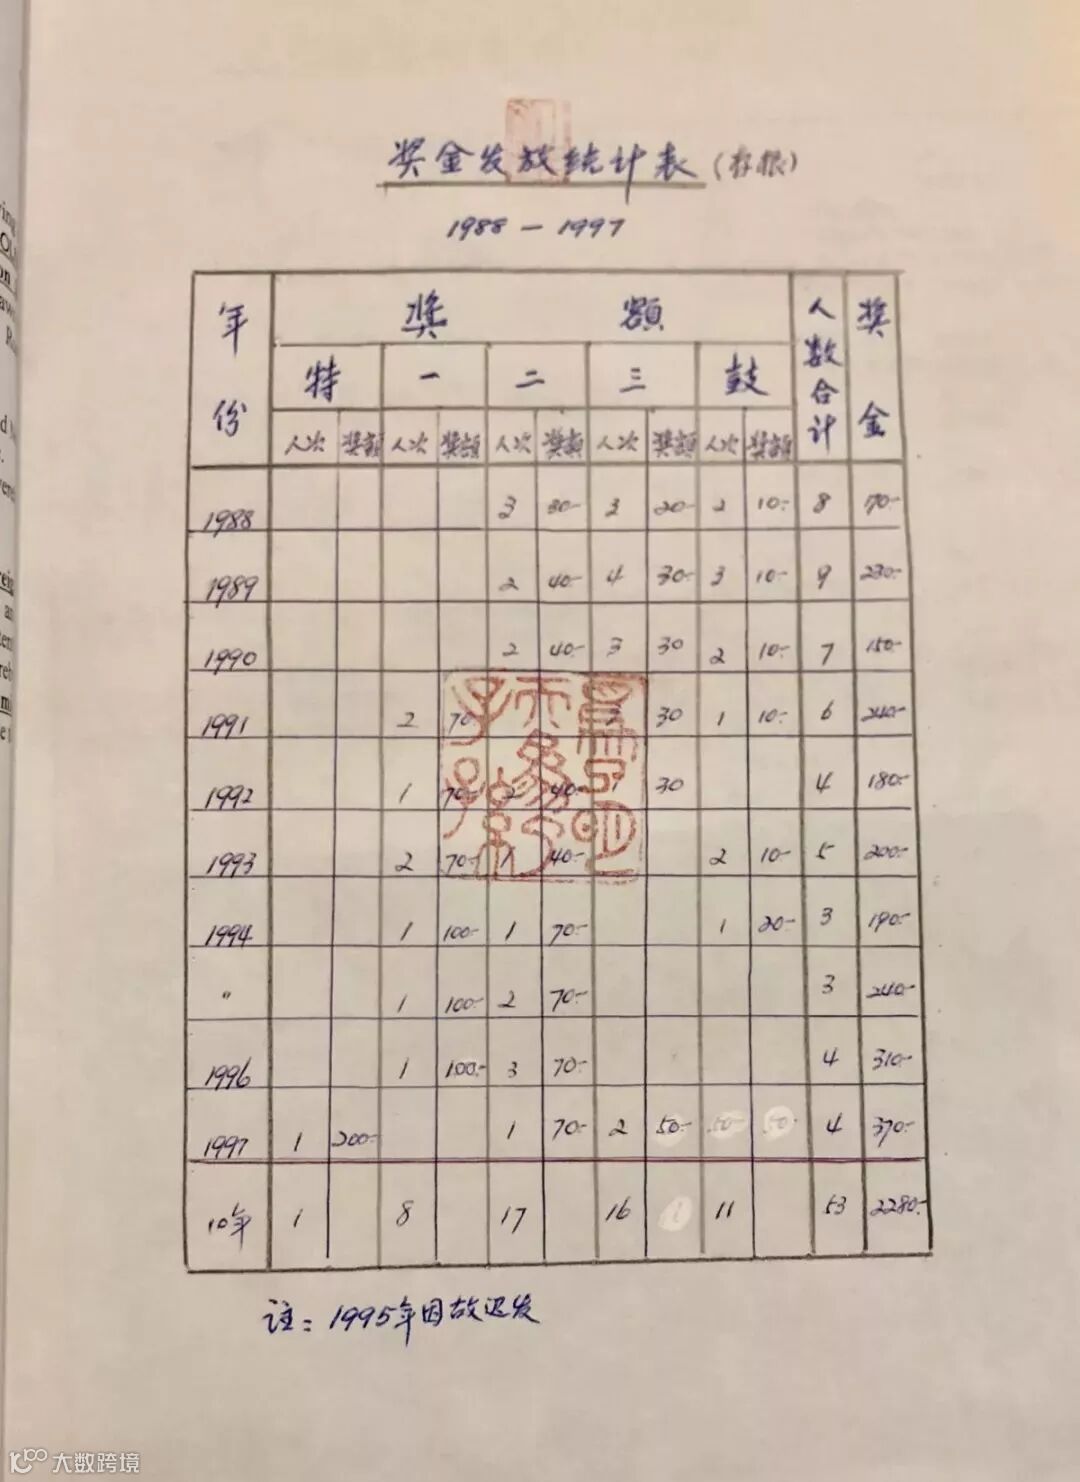 奖金发放统计表(存根)
1988 — 1997
年份 奖额 人数合计 奖金
特 一 二 三 鼓
人次 奖额 人次 奖额 人次 奖额 人次 奖额 人次 奖额
1988 3 30- 3 20- 2 10- 8 170-
1989 2 40- 4 30- 3 10- 9 230-
1990 2 40- 3 30 2 10- 7 150-
1991 2 70- 3 30 1 10- 6 240-
1992 1 70- 2 40- 1 30 4 180-
1993 2 70- 1 40- 2 10- 5 200-
1994 1 100- 1 70- 1 20- 3 190-
〃 1 100- 2 70- 3 240-
1996 1 100- 3 70- 4 310-
1997 1 200- 1 70- 2 50- 50- 50- 4 370-
10年 1 8 17 16 11 53 2280-
註：1995年因故迟发
大数跨境